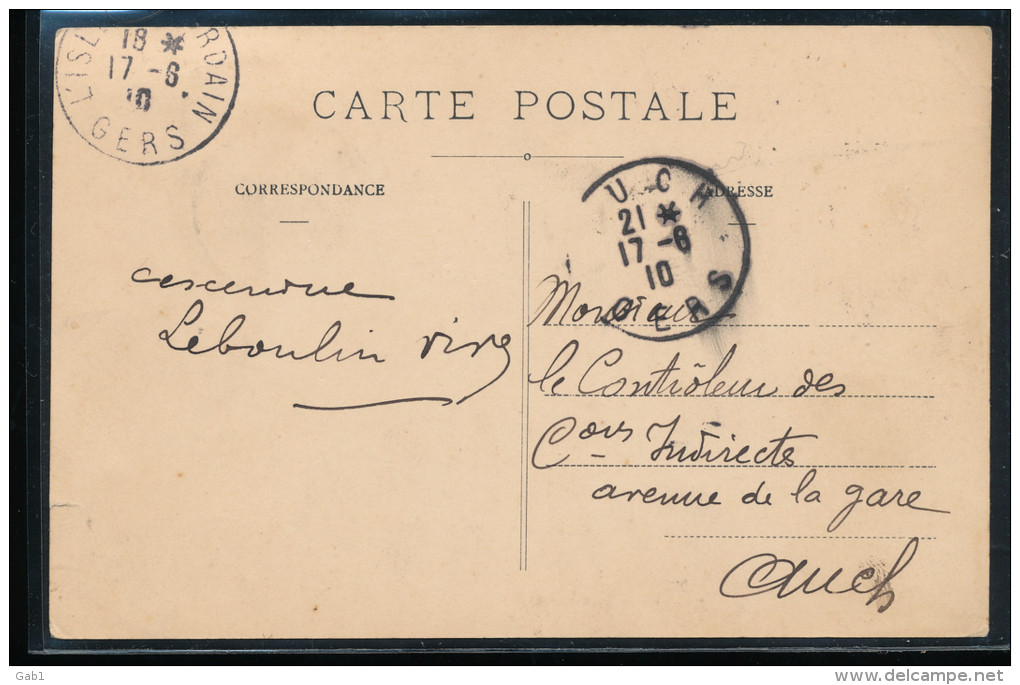 L'ISL RDAIN
18 *
17 - 6
10
GERS
CARTE POSTALE
CORRESPONDANCE
ADRESSE
UCH
21 *
17 - 6
10
GERS
Leboulin
Monsieur
le Contrôleur des
Cons Indirects
avenue de la gare
Auch
Gab1
delcampe.net